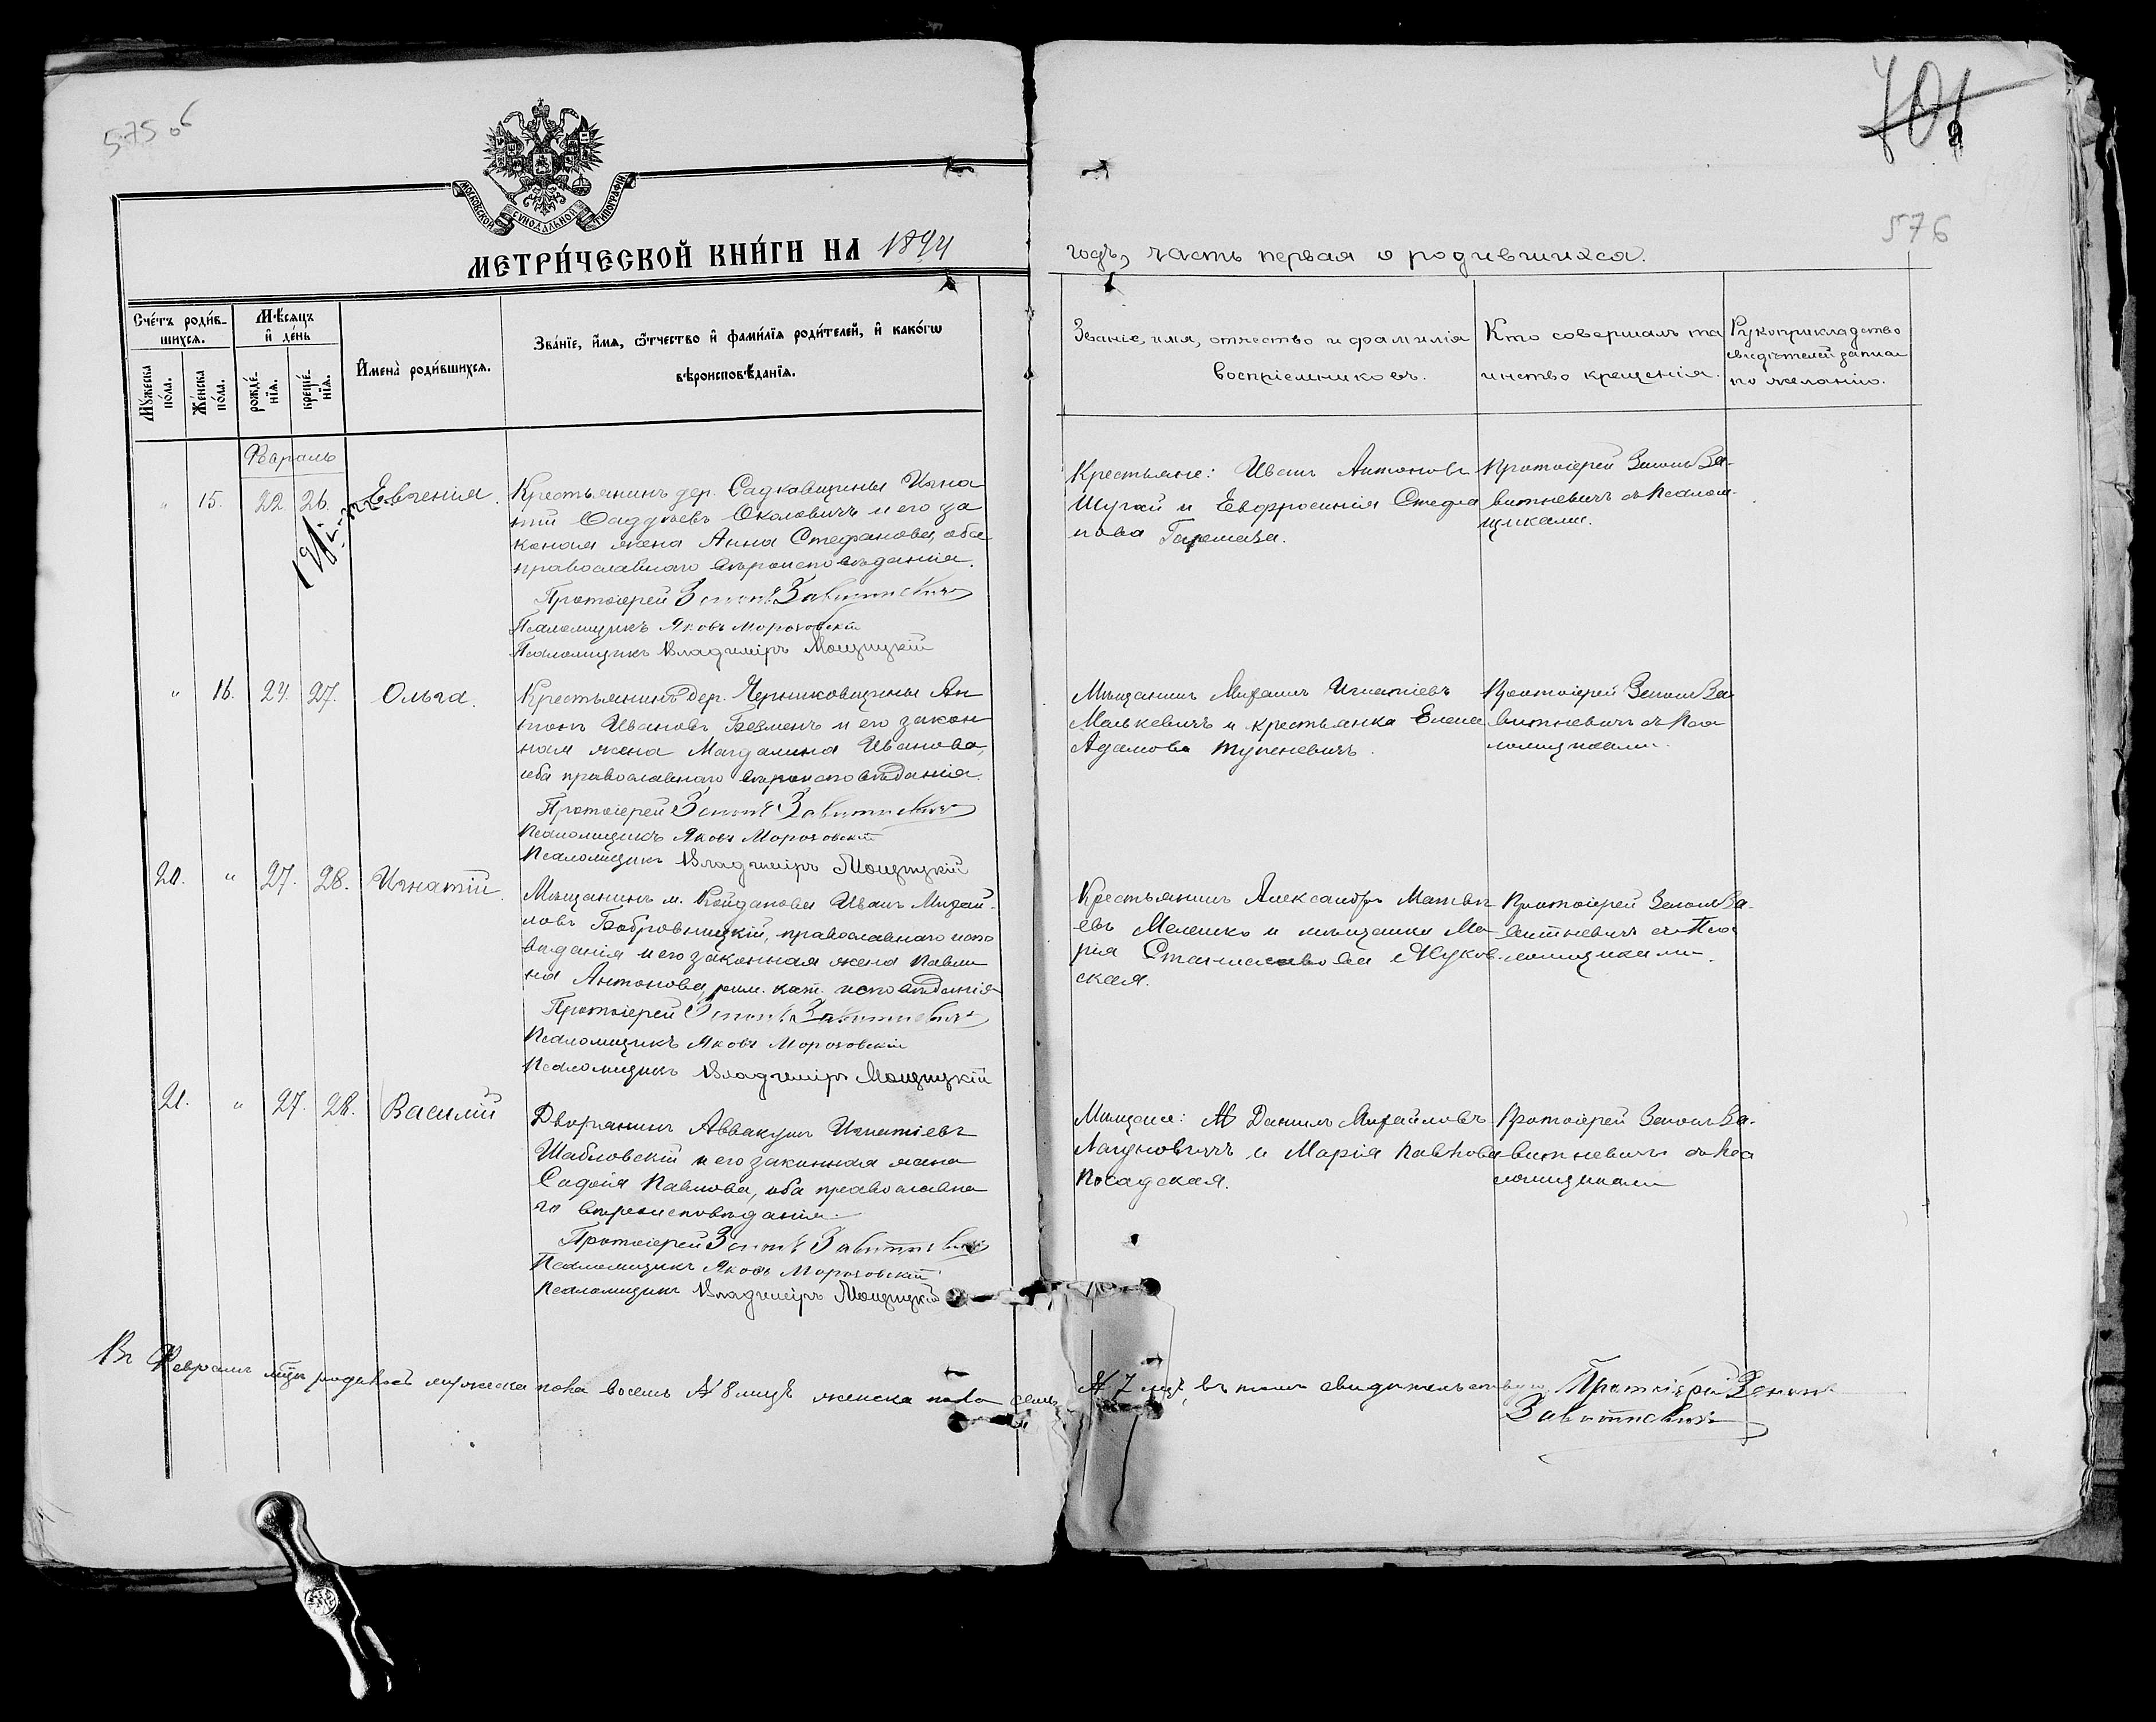 575 об
701
576
МОСКОВСКОЙ СѴНОДАЛЬНОЙ ТИПОГРАФІИ
МЕТРИ́ЧЕСКОЙ КНИ́ГИ НА 1894
годъ, часть первая о родившихся.
Сче́тъ роди́в-
шихся.
Мѣ́сяцъ
и҆ де́нь
Мꙋ́жеска по́ла.
Же́нска по́ла.
рожде́-
нїѧ.
креще́-
нїѧ.
И҆мена̀ роди́вшихся.
Зва́нїе, и҆́мѧ, ѻ҆́тчество и҆ фами́лїѧ роди́телей, и҆ како́гѡ
вѣроисповѣ́данїѧ.
Званіе, имя, отчество и фамилія
воспріемниковъ.
Кто совершалъ та
инство крещенія.
Рукоприкладство
свидѣтелей записи
по желанію.
Февраль
" 15. 22 26. Евгенія.
Крестьянинъ дер. Садковщины Игна
тій Фаддѣевъ Околовичъ и его за
конная жена Анна Стефанова, оба
православнаго вѣроисповѣданія.
Протоіерей Зенонъ Завитневичъ
Псаломщикъ Яковъ Морозовскій
Псаломщикъ Владиміръ Мощицкій
Крестьяне: Иванъ Антоновъ
Шугай и Евфросинія Стефа
нова
Протоіерей Зенонъ За-
витневичъ съ псалом-
щиками.
" 16. 24 27. Ольга.
Крестьянинъ дер. Черниковщины Ан
тонъ Ивановъ Безменъ и его закон
ная жена Магдалина Иванова,
оба православнаго вѣроисповѣданія.
Протоіерей Зенонъ Завитневичъ
Псаломщикъ Яковъ Морозовскій
Псаломщикъ Владиміръ Мощицкій
Мѣщанинъ Михаилъ Игнатіевъ
Малькевичъ и крестьянка Елена
Адамова Тупеневичъ.
Протоіерей Зенонъ За
витневичъ съ пса
ломщиками.
20. " 27. 28. Игнатій.
Мѣщанинъ м. Койданова Иванъ Михай-
ловъ Бобровницкій, православнаго испо
вѣданія и его законная жена Павли
на Антонова, рим. кат. исповѣданія
Протоіерей Зенонъ Завитневичъ
Псаломщикъ Яковъ Морозовскій
Псаломщикъ Владиміръ Мощицкій
Крестьянинъ Александръ Матвѣ
евъ Мелешко и мѣщанка Ма
рія Станиславова Жуков-
ская.
Протоіерей Зенонъ За-
витневичъ съ Пса
ломщиками.
21. " 27. 28. Василій
Дворянинъ Аввакумъ Игнатіевъ
Шабловскій и его законная жена
Софія Павлова, оба православна
го вѣроисповѣданія.
Протоіерей Зенонъ Завитневичъ
Псаломщикъ Яковъ Морозовскій
Псаломщикъ Владиміръ Мощицкій
Мѣщане: Даніилъ Михайловъ
Лагуновичъ и Марія Павлова
Посадская.
Протоіерей Зенонъ За-
витневичъ съ пса
ломщиками
Въ Февралѣ мцѣ родилось мужеска пола восемь № 8 лицъ женска пола семь
№ 7 лицъ, въ томъ свидѣтельствую. Протоіерей Зенонъ
Завитневичъ